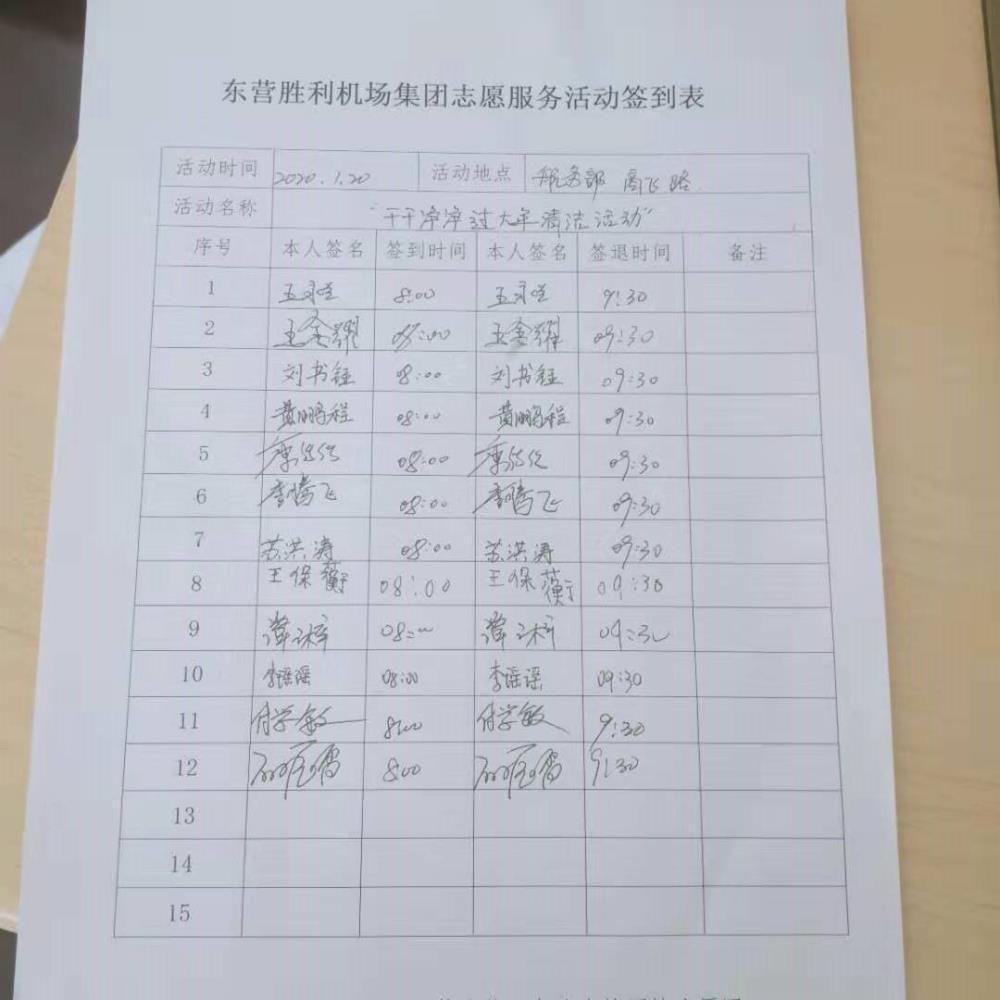 东营胜利机场集团志愿服务活动签到表
活动时间 2020.1.20 活动地点 航务部 高飞路
活动名称 "干干净净过大年清洁活动"
序号 本人签名 签到时间 本人签名 签退时间 备注
1 8:00 9:30
2 王金耀 08:00 王金耀 09:30
3 刘书钰 08:00 刘书钰 09:30
4 黄鹏程 08:00 黄鹏程 09:30
5 08:00 09:30
6 李腾飞 08:00 李腾飞 09:30
7 苏洪涛 08:00 苏洪涛 09:30
8 王保蘅 08:00 王保蘅 09:30
9 08:00 09:30
10 李瑶瑶 08:00 李瑶瑶 09:30
11 付学敏 8:00 付学敏 9:30
12 8:00 9:30
13
14
15